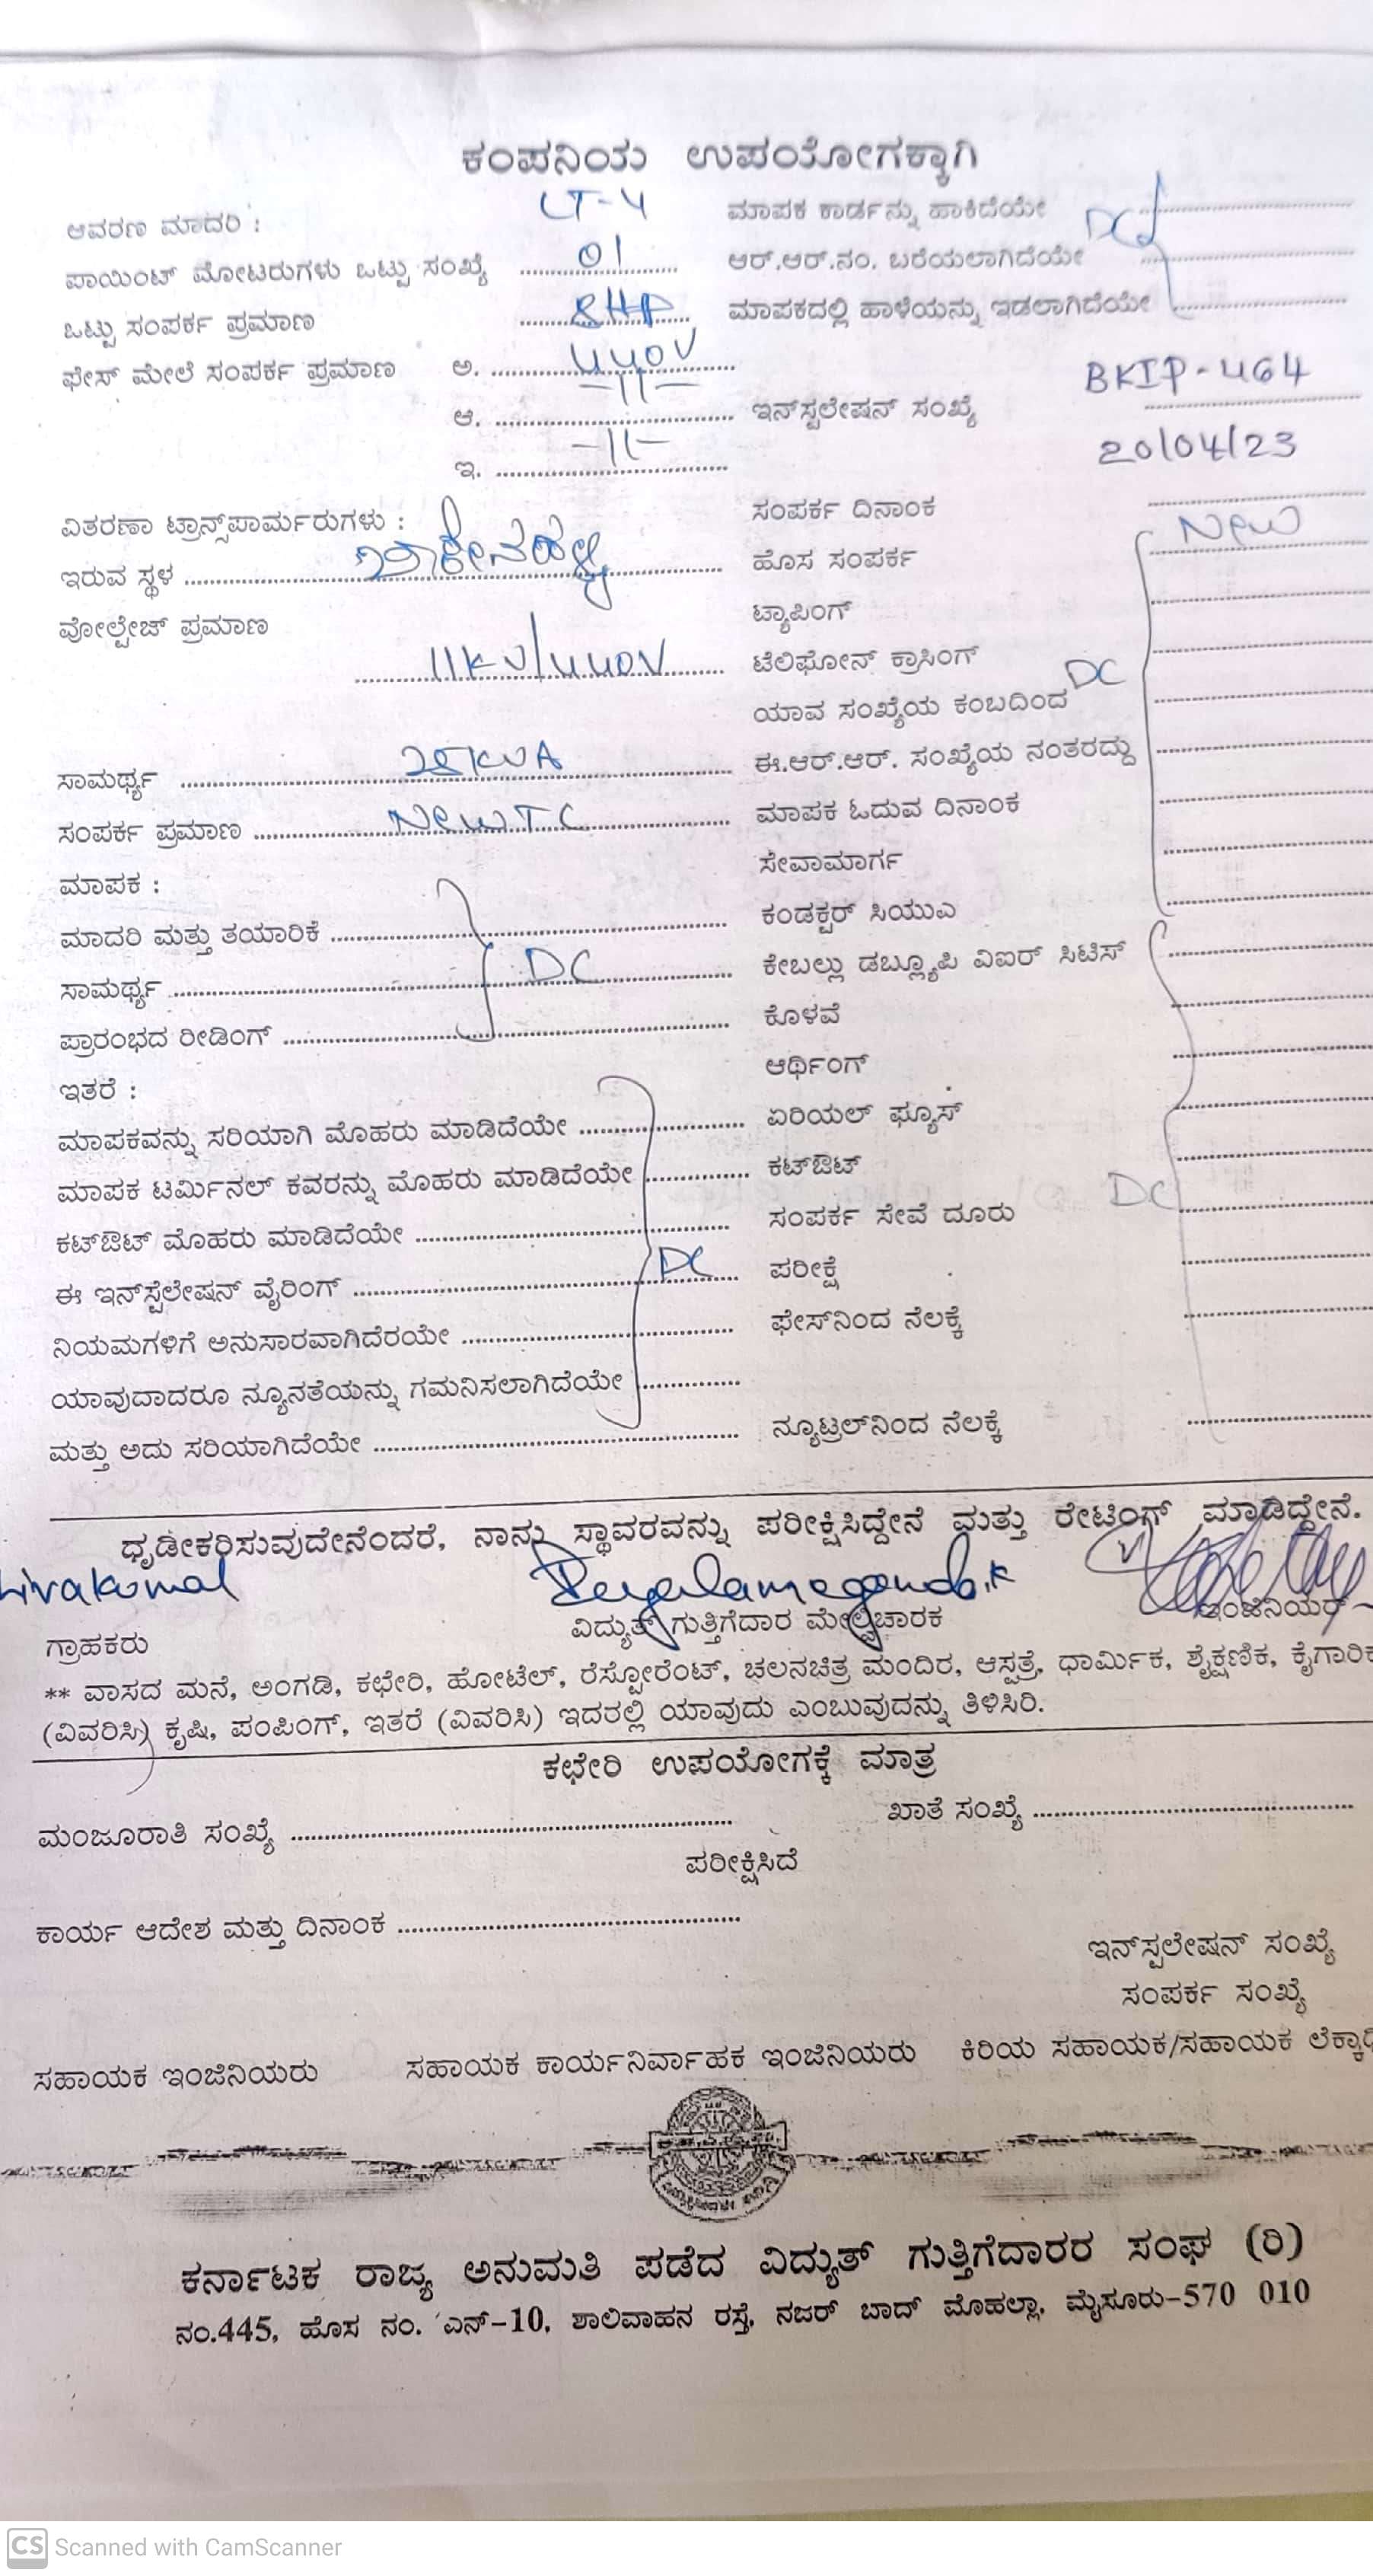 ಕಂಪನಿಯ ಉಪಯೋಗಕ್ಕಾಗಿ
ಆವರಣ ಮಾದರಿ : LT-4
ಪಾಯಿಂಟ್ ಮೋಟರುಗಳು ಒಟ್ಟು ಸಂಖ್ಯೆ 01
ಒಟ್ಟು ಸಂಪರ್ಕ ಪ್ರಮಾಣ 8HP
ಫೇಸ್ ಮೇಲೆ ಸಂಪರ್ಕ ಪ್ರಮಾಣ ಅ. 440V
ಆ. -11-
ಇ. -11-
ವಿತರಣಾ ಟ್ರಾನ್ಸ್‌ಪಾರ್ಮರುಗಳು :
ಇರುವ ಸ್ಥಳ
ವೋಲ್ಟೇಜ್ ಪ್ರಮಾಣ
11KV/440V
ಸಾಮರ್ಥ್ಯ 25KVA
ಸಂಪರ್ಕ ಪ್ರಮಾಣ New TC
ಮಾಪಕ :
ಮಾದರಿ ಮತ್ತು ತಯಾರಿಕೆ
ಸಾಮರ್ಥ್ಯ DC
ಪ್ರಾರಂಭದ ರೀಡಿಂಗ್
ಇತರೆ :
ಮಾಪಕವನ್ನು ಸರಿಯಾಗಿ ಮೊಹರು ಮಾಡಿದೆಯೇ
ಮಾಪಕ ಟರ್ಮಿನಲ್ ಕವರನ್ನು ಮೊಹರು ಮಾಡಿದೆಯೇ
ಕಟ್‌ಔಟ್ ಮೊಹರು ಮಾಡಿದೆಯೇ
ಈ ಇನ್‌ಸ್ಪಲೇಷನ್ ವೈರಿಂಗ್ DC
ನಿಯಮಗಳಿಗೆ ಅನುಸಾರವಾಗಿದೆರಯೇ
ಯಾವುದಾದರೂ ನ್ಯೂನತೆಯನ್ನು ಗಮನಿಸಲಾಗಿದೆಯೇ
ಮತ್ತು ಅದು ಸರಿಯಾಗಿದೆಯೇ
ಮಾಪಕ ಕಾರ್ಡನ್ನು ಹಾಕಿದೆಯೇ
ಆರ್.ಆರ್.ನಂ. ಬರೆಯಲಾಗಿದೆಯೇ DC
ಮಾಪಕದಲ್ಲಿ ಹಾಳೆಯನ್ನು ಇಡಲಾಗಿದೆಯೇ
ಇನ್‌ಸ್ಪಲೇಷನ್ ಸಂಖ್ಯೆ BKIP-464
20/04/23
ಸಂಪರ್ಕ ದಿನಾಂಕ
ಹೊಸ ಸಂಪರ್ಕ New
ಟ್ಯಾಪಿಂಗ್
ಟೆಲಿಫೋನ್ ಕ್ರಾಸಿಂಗ್ DC
ಯಾವ ಸಂಖ್ಯೆಯ ಕಂಬದಿಂದ
ಈ.ಆರ್.ಆರ್. ಸಂಖ್ಯೆಯ ನಂತರದ್ದು
ಮಾಪಕ ಓದುವ ದಿನಾಂಕ
ಸೇವಾಮಾರ್ಗ
ಕಂಡಕ್ಟರ್ ಸಿಯುಎ
ಕೇಬಲ್ಲು ಡಬ್ಲ್ಯೂಪಿ ವಿಐರ್ ಸಿಟಿಸ್
ಕೊಳವೆ
ಆರ್ಥಿಂಗ್
ಏರಿಯಲ್ ಫ್ಯೂಸ್
ಕಟ್‌ಔಟ್
ಸಂಪರ್ಕ ಸೇವೆ ದೂರು DC
ಪರೀಕ್ಷೆ
ಫೇಸ್‌ನಿಂದ ನೆಲಕ್ಕೆ
ನ್ಯೂಟ್ರಲ್‌ನಿಂದ ನೆಲಕ್ಕೆ
ಧೃಡೀಕರಿಸುವುದೇನೆಂದರೆ, ನಾನು ಸ್ಥಾವರವನ್ನು ಪರೀಕ್ಷಿಸಿದ್ದೇನೆ ಮತ್ತು ರೇಟಿಂಗ್ ಮಾಡಿದ್ದೇನೆ.
ಗ್ರಾಹಕರು ವಿದ್ಯುತ್ ಗುತ್ತಿಗೆದಾರ ಮೇಲ್ವಿಚಾರಕ ಇಂಜಿನಿಯರ್
** ವಾಸದ ಮನೆ, ಅಂಗಡಿ, ಕಛೇರಿ, ಹೋಟೆಲ್, ರೆಸ್ಟೋರೆಂಟ್, ಚಲನಚಿತ್ರ ಮಂದಿರ, ಆಸ್ಪತ್ರೆ, ಧಾರ್ಮಿಕ, ಶೈಕ್ಷಣಿಕ, ಕೈಗಾರಿಕ
(ವಿವರಿಸಿ) ಕೃಷಿ, ಪಂಪಿಂಗ್, ಇತರೆ (ವಿವರಿಸಿ) ಇದರಲ್ಲಿ ಯಾವುದು ಎಂಬುವುದನ್ನು ತಿಳಿಸಿರಿ.
ಕಛೇರಿ ಉಪಯೋಗಕ್ಕೆ ಮಾತ್ರ
ಮಂಜೂರಾತಿ ಸಂಖ್ಯೆ ಖಾತೆ ಸಂಖ್ಯೆ
ಪರೀಕ್ಷಿಸಿದೆ
ಕಾರ್ಯ ಆದೇಶ ಮತ್ತು ದಿನಾಂಕ
ಇನ್‌ಸ್ಪಲೇಷನ್ ಸಂಖ್ಯೆ
ಸಂಪರ್ಕ ಸಂಖ್ಯೆ
ಸಹಾಯಕ ಇಂಜಿನಿಯರು ಸಹಾಯಕ ಕಾರ್ಯನಿರ್ವಾಹಕ ಇಂಜಿನಿಯರು ಕಿರಿಯ ಸಹಾಯಕ/ಸಹಾಯಕ
ಕರ್ನಾಟಕ ರಾಜ್ಯ ಅನುಮತಿ ಪಡೆದ ವಿದ್ಯುತ್ ಗುತ್ತಿಗೆದಾರರ ಸಂಘ (ರಿ)
ನಂ.445, ಹೊಸ ನಂ. ಎನ್-10, ಶಾಲಿವಾಹನ ರಸ್ತೆ, ನಜರ್ ಬಾದ್ ಮೊಹಲ್ಲಾ, ಮೈಸೂರು-570 010
CS Scanned with CamScanner